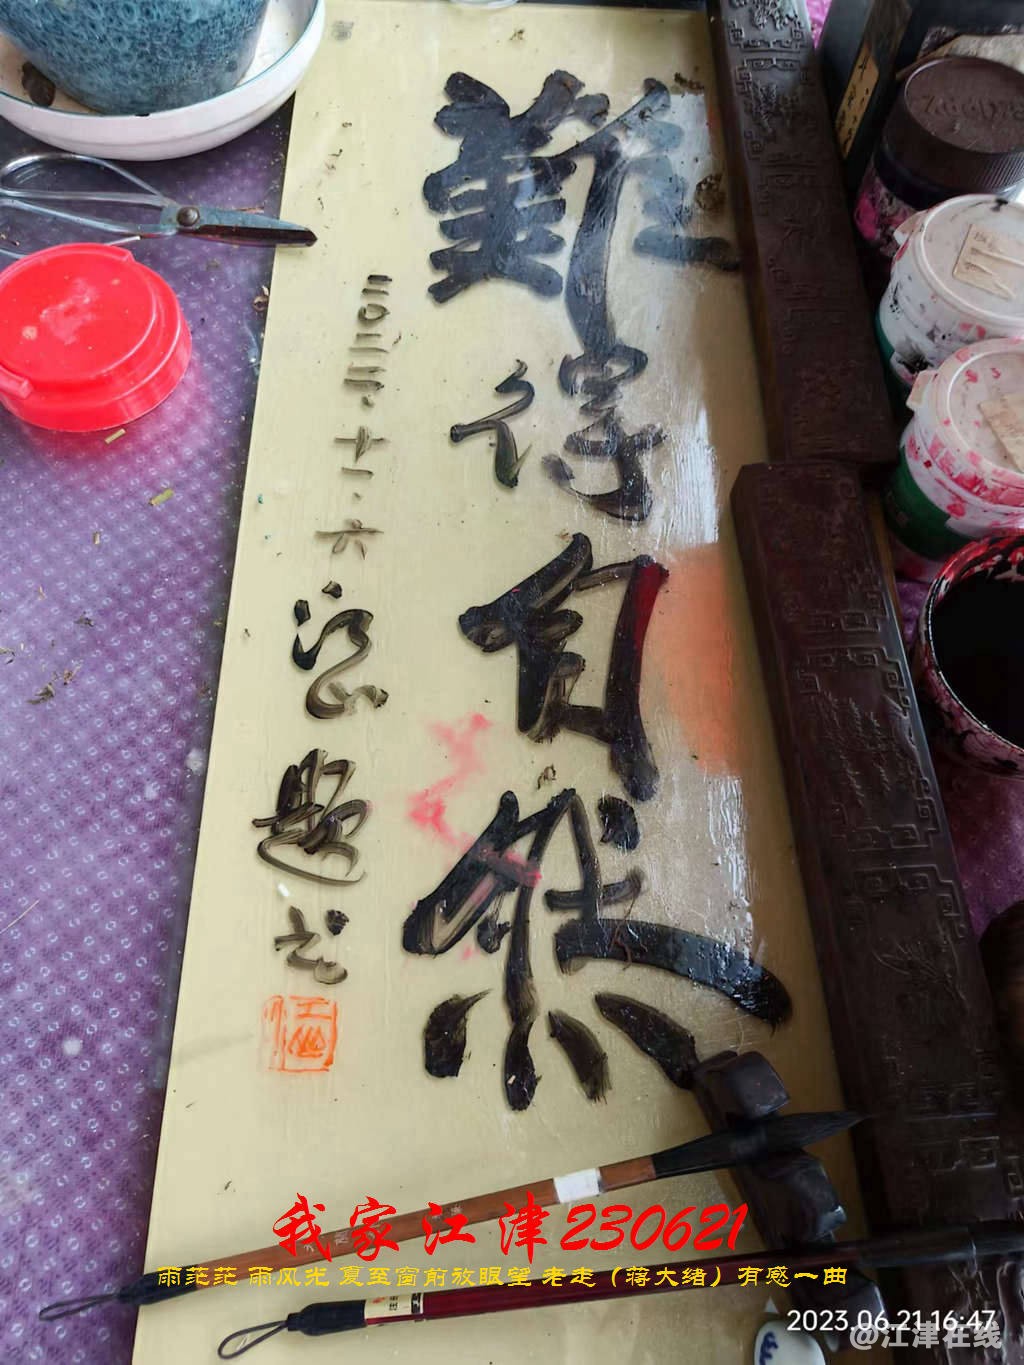 難得自然
二〇二二.十一.六
题
我家江津230621
雨茫茫 雨风光 夏至窗前放眼望 老走（蒋大绪）有感一曲
2023.06.21 16:47
@江津在线